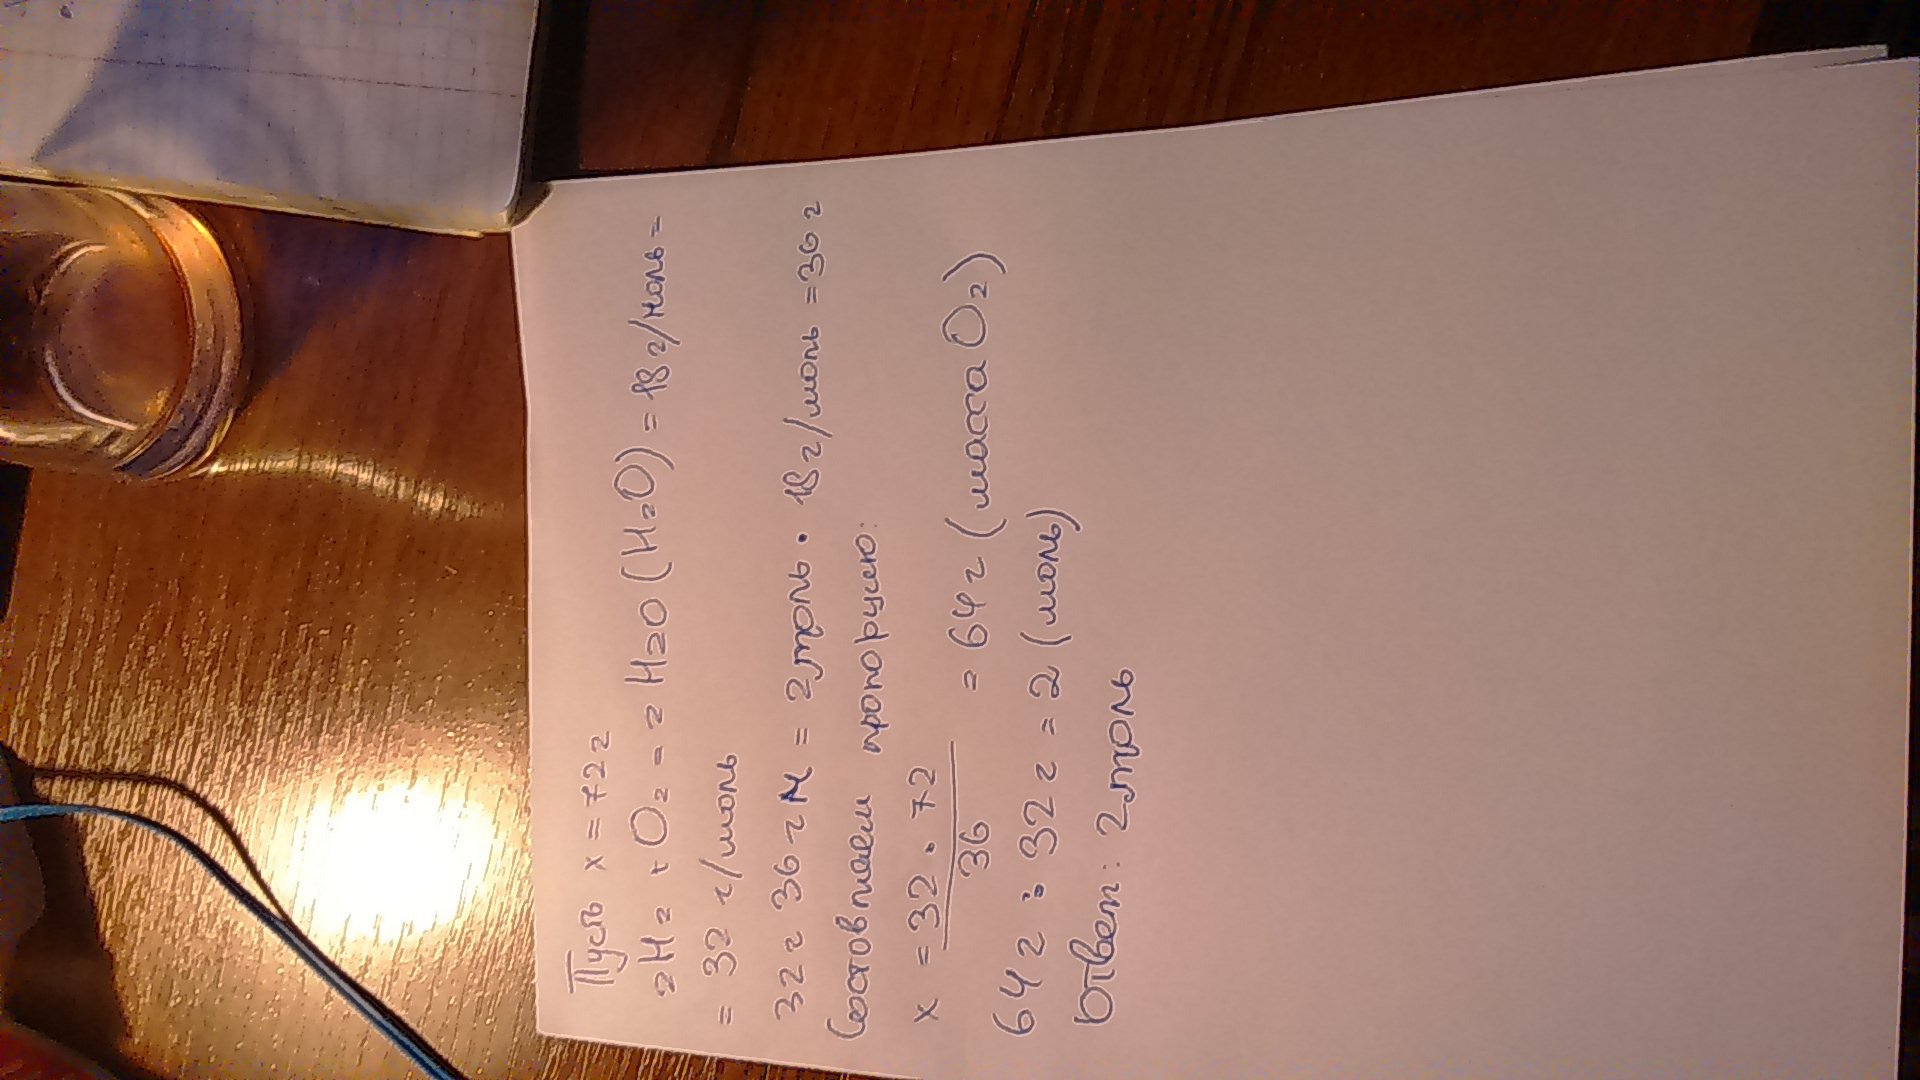 Пусть x = 72 г
2H₂ + O₂ = 2H₂O (H₂O) = 18 г/моль =
= 32 г/моль
32 г 36 г M = 2 моль • 18 г/моль = 36 г
Составляем пропорцию:
x = 32 • 72 / 36 = 64 г (масса O₂)
64 г : 32 г = 2 (моль)
Ответ: 2 моль